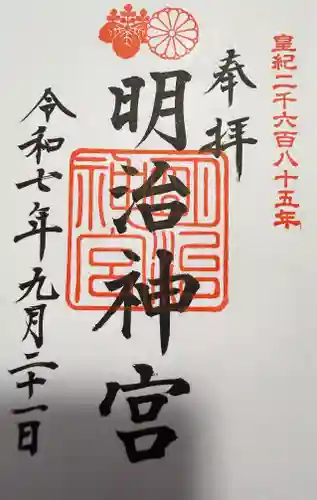 皇紀二千六百八十五年
奉拝
明治神宮
明治神宮
令和七年九月二十一日